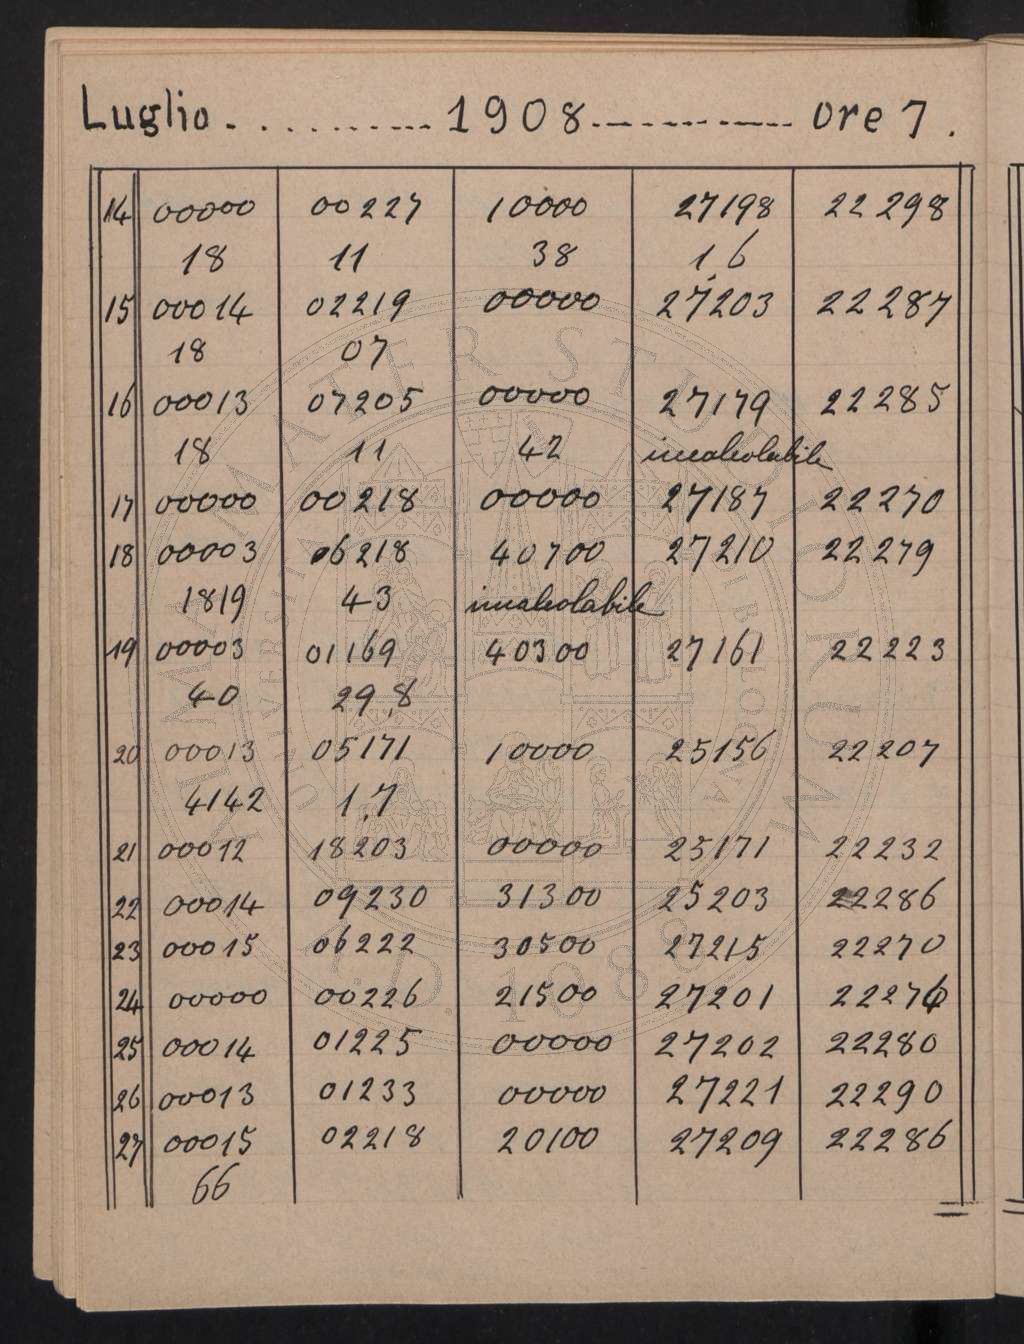 Luglio . . . . . . . . . . . . . . 1908 . . . . . . . . . . . . . ore 7 .
14 00000 00227 10000 27198 22298
18 11 38 1,6
15 00014 02219 00000 27203 22287
18 07
16 00013 07205 00000 27179 22285
18 11 42 incalcolabile
17 00000 00218 00000 27187 22270
18 00003 06218 40700 27210 22279
1819 43 incalcolabile
19 00003 01169 40300 27161 22223
40 29,8
20 00013 05171 10000 25156 22207
4142 1,7
21 00012 18203 00000 25171 22232
22 00014 09230 31300 25203 22286
23 00015 06222 30500 27215 22270
24 00000 00226 21500 27201 22276
25 00014 01225 00000 27202 22280
26 00013 01233 00000 27221 22290
27 00015 02218 20100 27209 22286
66
ALMA MATER STUDIORUM
A.D. 1088